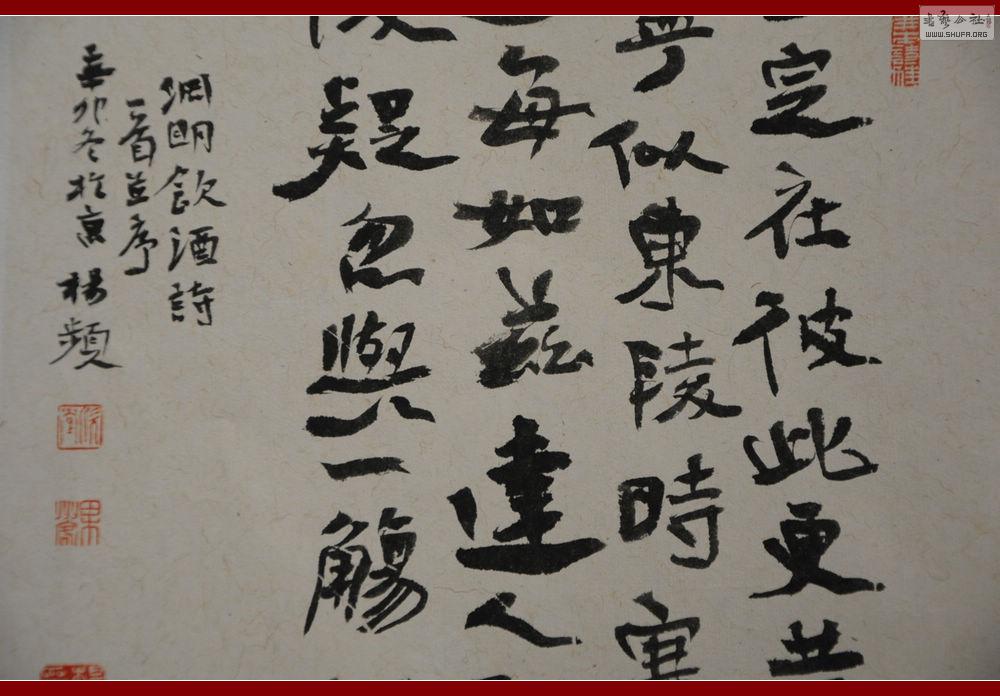 定在彼此更共
寧似東陵時寒
每如茲達人
復疑忽與一觴
淵明飲酒詩
一首並序
辛卯冬於京楊頻
书艺公社
WWW.SHUFA.ORG